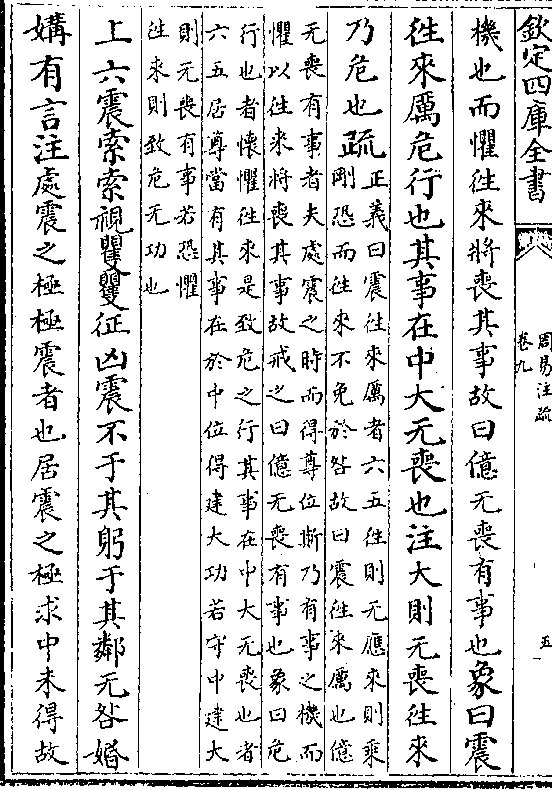 欽定四庫全書
周易注疏
卷九
五
機也而懼徃來將喪其事故曰億无喪有事也象曰震
徃來厲危行也其事在中大无喪也注大則无喪徃來
乃危也疏正義曰震徃來厲者六五徃則无應來則乘
剛恐而徃來不免於咎故曰震徃來厲也億
无喪有事者夫處震之時而得尊位斯乃有事之機而
懼以徃來將喪其事故戒之曰億无喪有事也象曰危
行也者懷懼徃來是致危之行其事在中大无喪也者
六五居尊當有其事在於中位得建大功若守中建大
則无喪有事若恐懼
徃來則致危无功也
上六震索索視矍矍征凶震不于其躬于其鄰无咎婚
媾有言注處震之極極震者也居震之極求中未得故